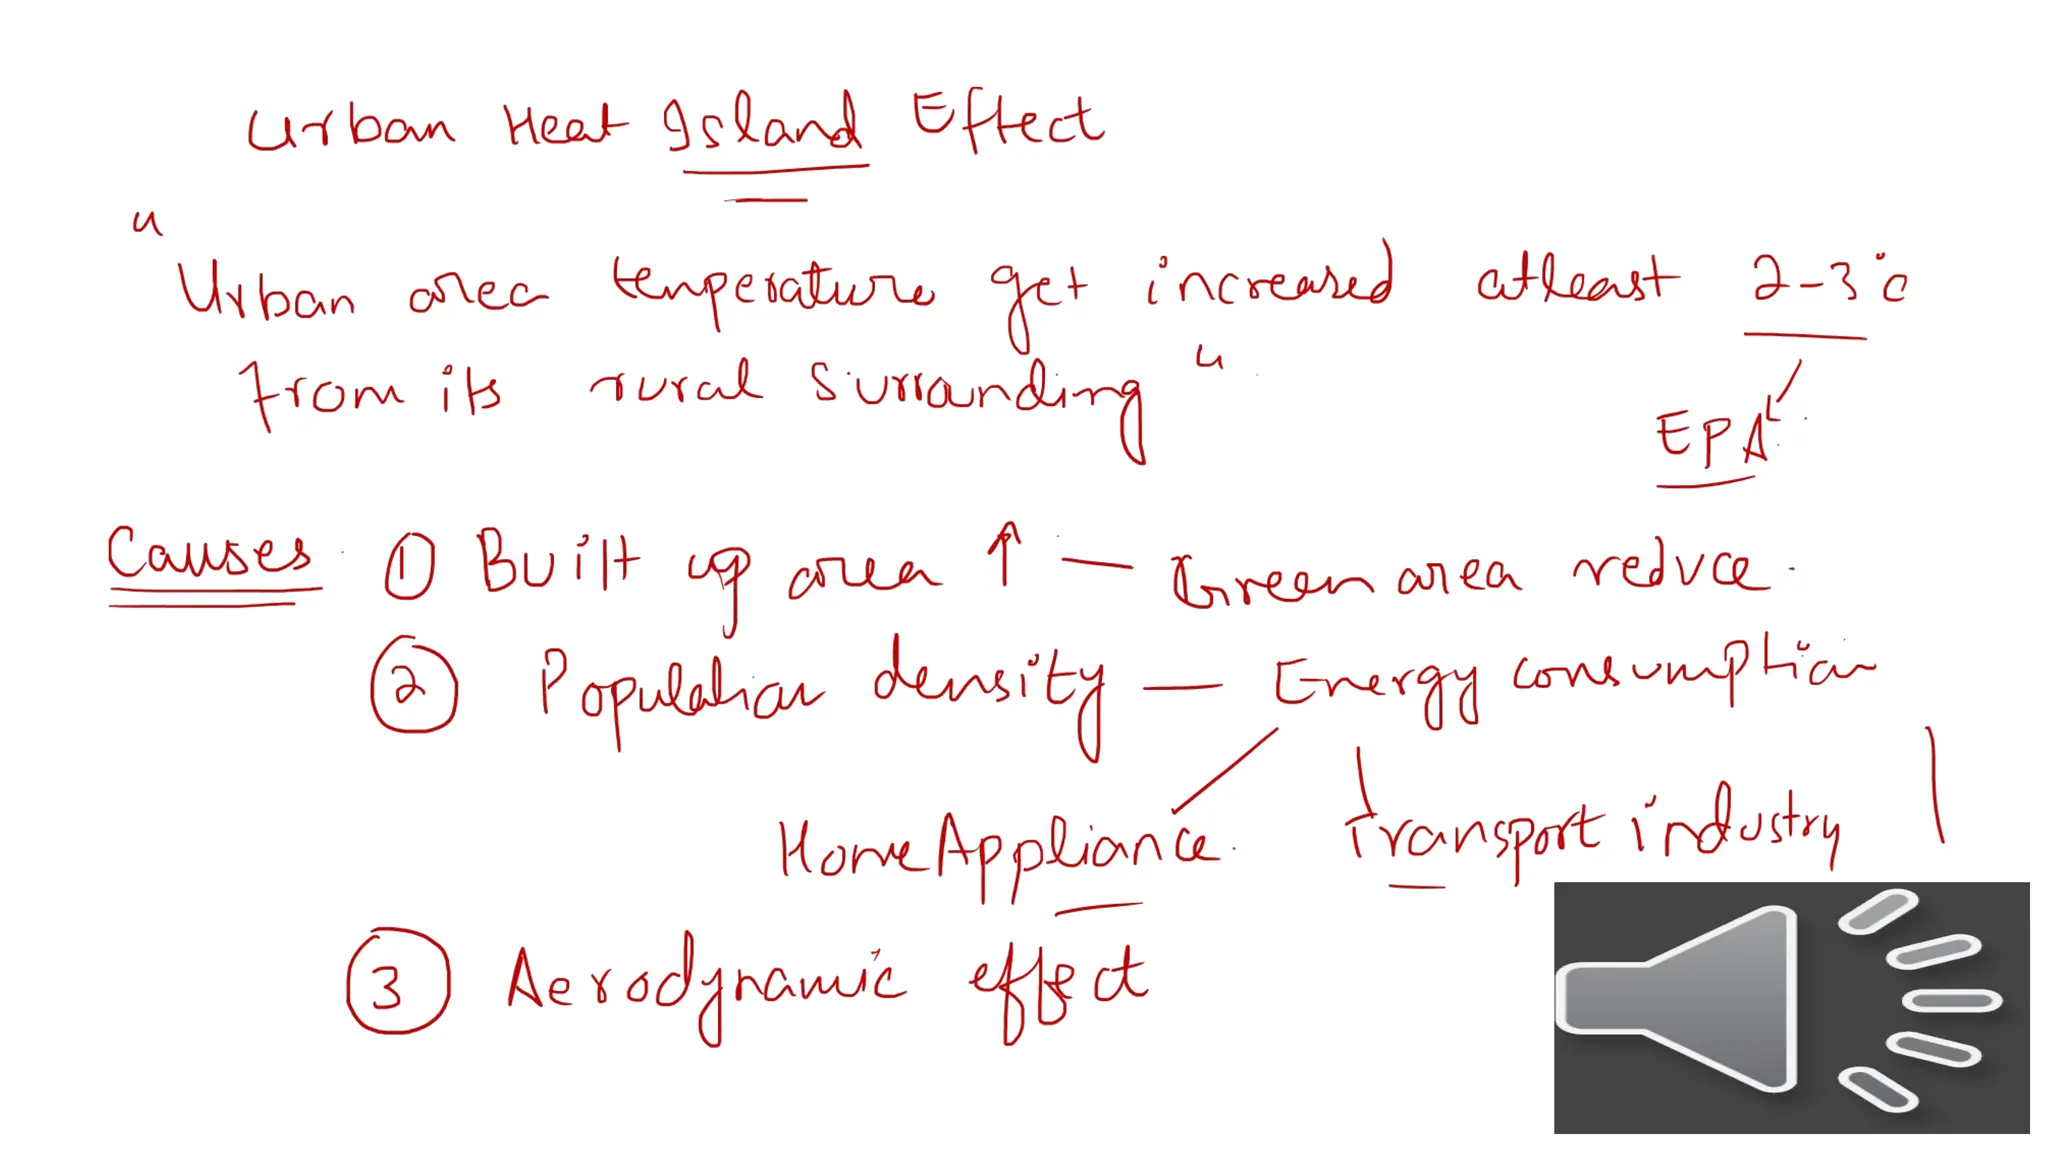 Urban Heat Island Effect
"Urban area temperature get increased atleast 2-3°c
from its rural surranding"
EPA
Causes ① Built up area ↑ — Green area reduce.
② Population density — Energy consumption
Home Appliance. Transport industry
③ Aerodynamic effect